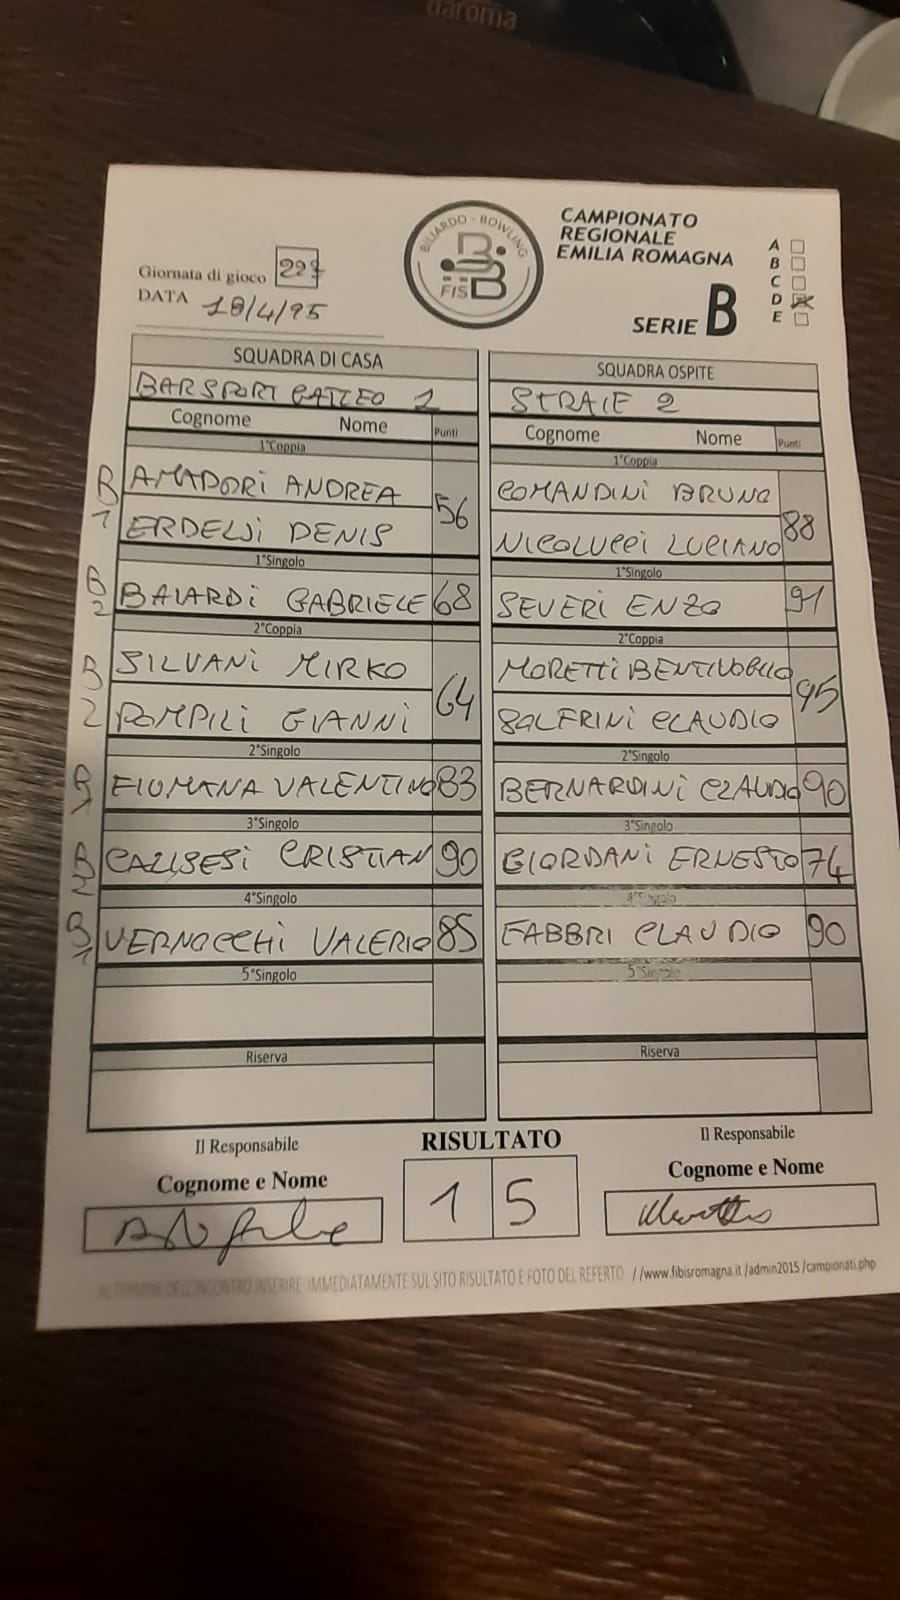 daroma
BILIARDO - BOWLING
FISBB
CAMPIONATO
REGIONALE
EMILIA ROMAGNA
SERIE B
A
B
C
D
E
Giornata di gioco
DATA 18/4/95
SQUADRA DI CASA
BARSPORT GATTEO 1
Cognome Nome Punti
1°Coppia
B1 AMADORI ANDREA 56
ERDELJI DENIS
1°Singolo
B2 BAIARDI GABRIELE 68
2°Coppia
B2 SILVANI MIRKO 64
POMPILI GIANNI
2°Singolo
B1 FIUMANA VALENTINO 83
3°Singolo
B2 CALISESI CRISTIAN 90
4°Singolo
B1 VERNOCCHI VALERIO 85
5°Singolo
Riserva
SQUADRA OSPITE
STRALE 2
Cognome Nome Punti
1°Coppia
COMANDINI BRUNO 88
NICOLUCCI LUCIANO
1°Singolo
SEVERI ENZO 91
2°Coppia
MORETTI BENTIVOGLIO 95
GOLFRINI CLAUDIO
2°Singolo
BERNARDINI CLAUDIO 90
3°Singolo
GIORDANI ERNESTO 74
4°Singolo
FABBRI CLAUDIO 90
5°Singolo
Riserva
Il Responsabile
Cognome e Nome
RISULTATO
1 5
Il Responsabile
Cognome e Nome
AL TERMINE DELL'INCONTRO INSERIRE IMMEDIATAMENTE SUL SITO RISULTATO E FOTO DEL REFERTO //www.fibisromagna.it/admin2015/campionati.php